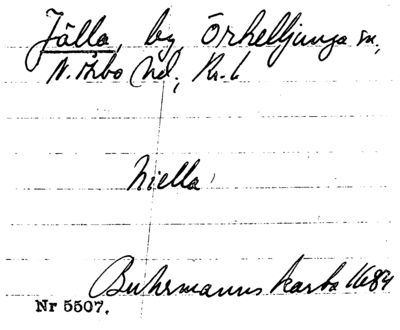 Jälla, by, Örkelljunga sn,
N. Åsbo hd, Kr. l
hiella
Buhrmanns karta 1684
Nr 5507.